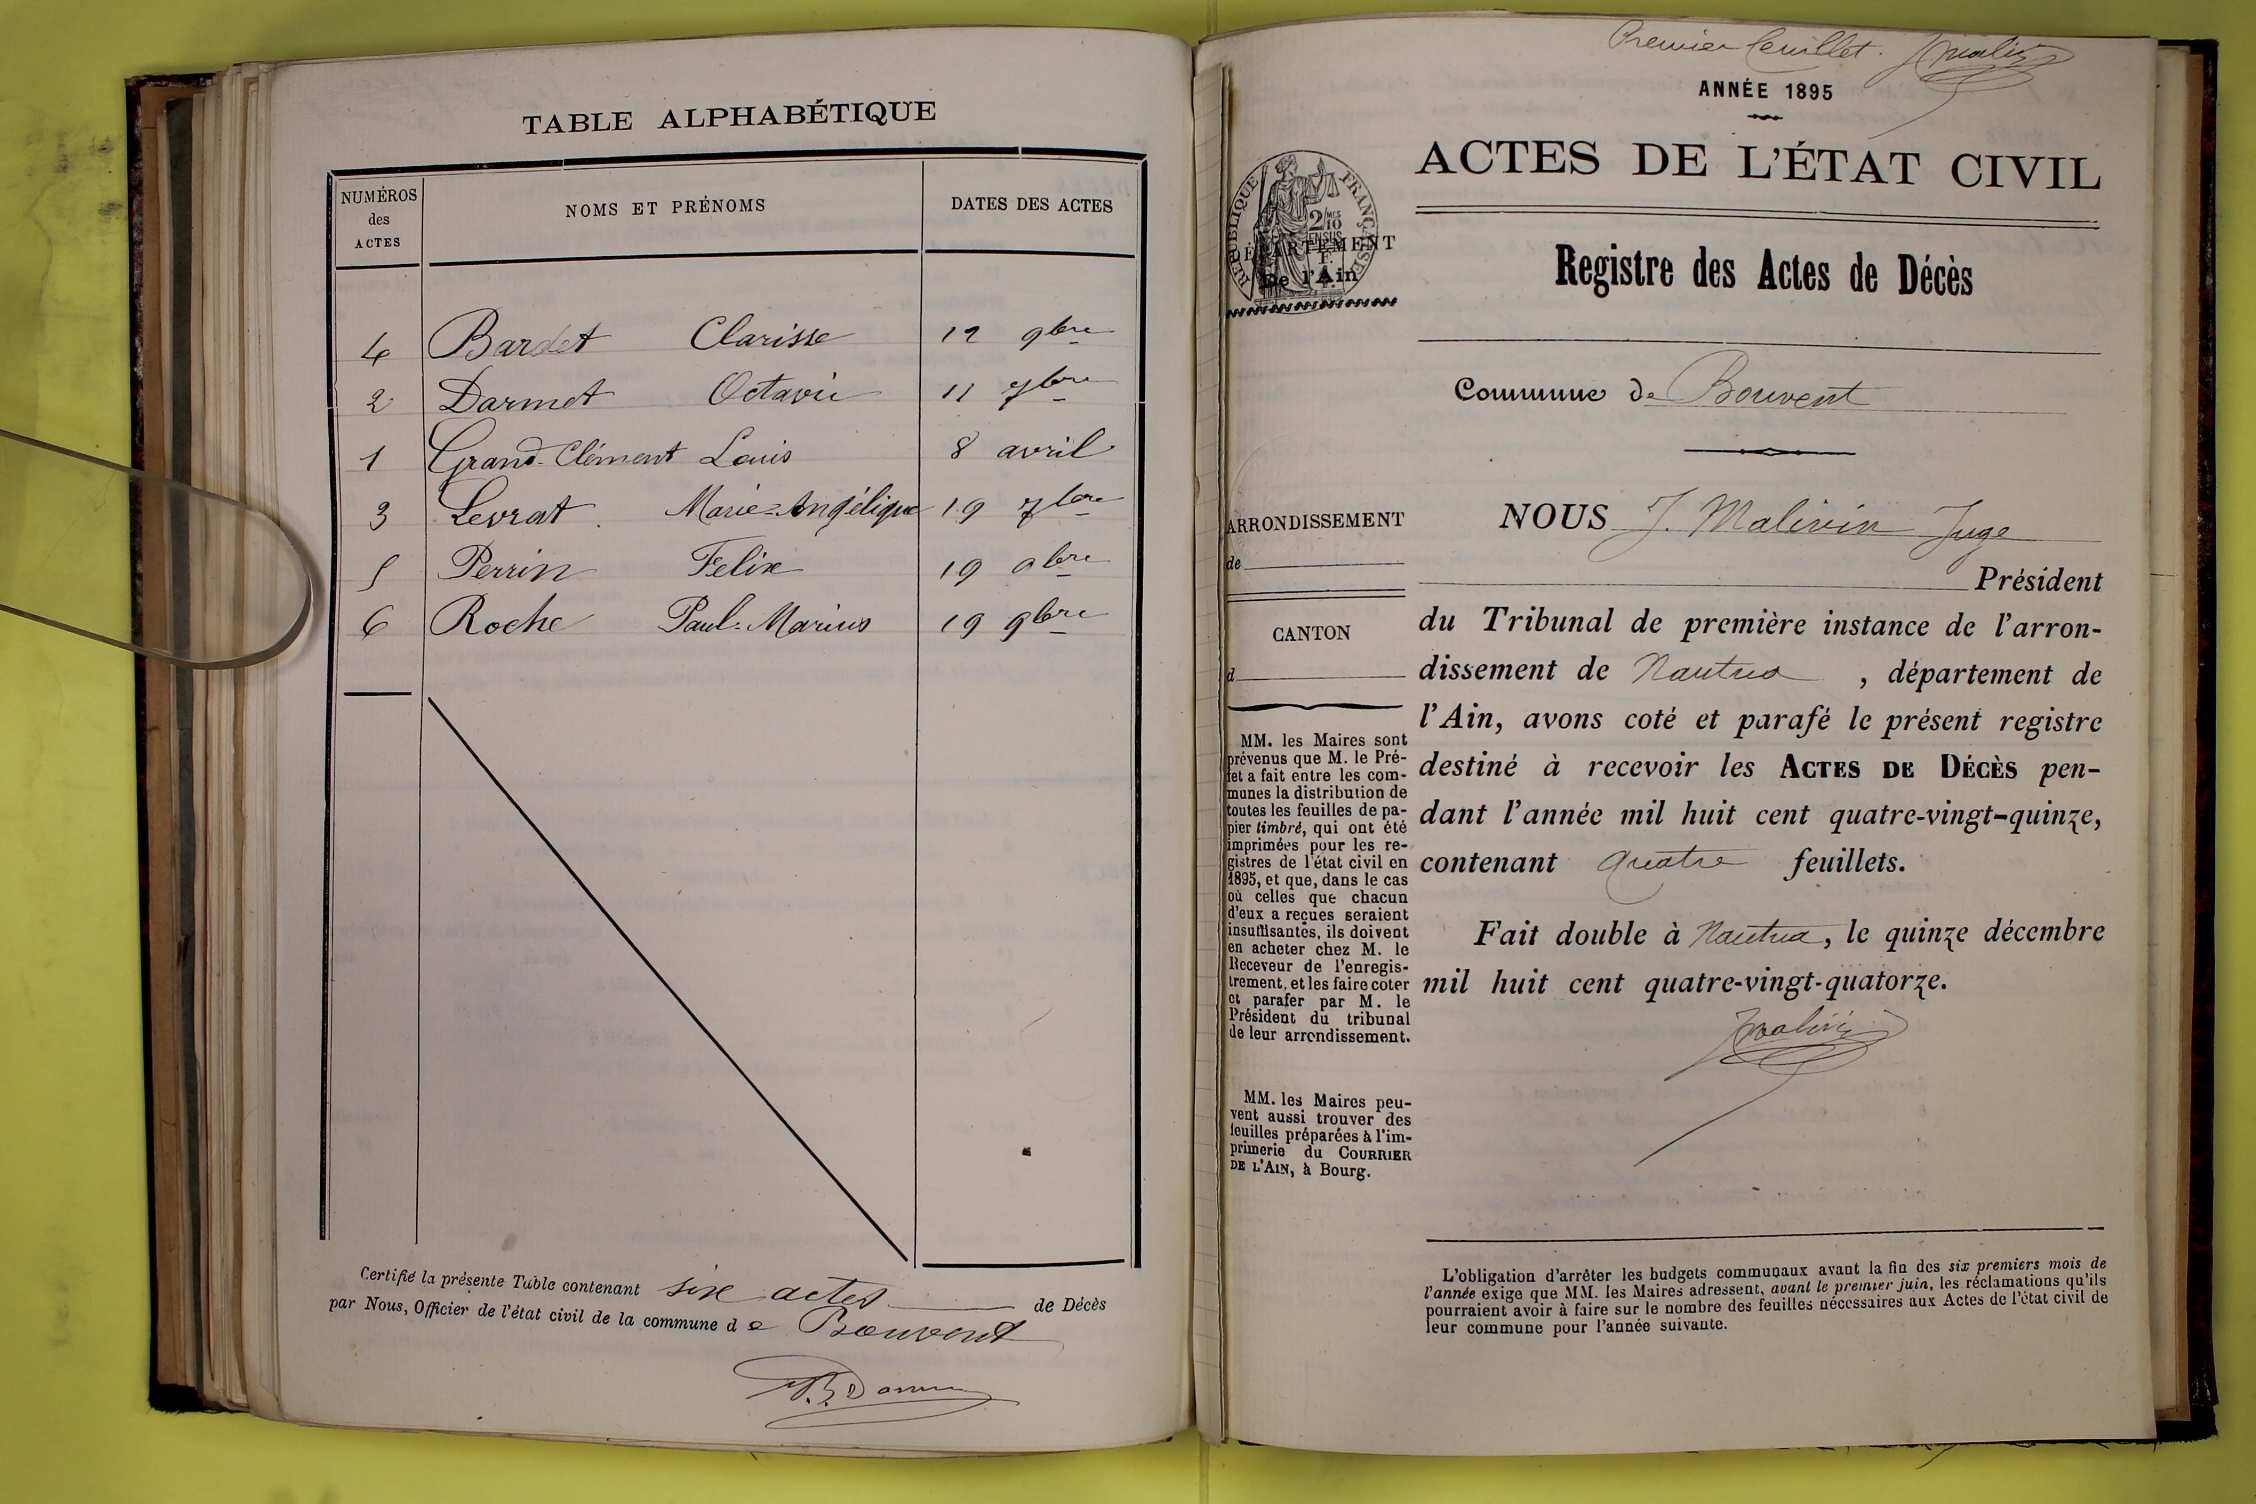 TABLE ALPHABÉTIQUE
NUMÉROS des ACTES
NOMS ET PRÉNOMS
DATES DES ACTES
4 Bardet Clarisse 12 9bre
2 Darmet Octavie 11 7bre
1 Grand-Clément Louis 8 avril
3 Levrat Marie-Angélique 19 7bre
5 Perrin Felix 19 9bre
6 Roche Paul-Marius 19 9bre
Certifié la présente Table contenant six actes de Décès
par Nous, Officier de l'état civil de la commune de Bouvent
Premier feuillet. JMalivin
ANNÉE 1895
ACTES DE L'ÉTAT CIVIL
RÉPUBLIQUE FRANÇAISE
2/10 MES
EN SUS
DÉPARTEMENT
De l'Ain
Registre des Actes de Décès
Commune de Bouvent
ARRONDISSEMENT
de
CANTON
d
MM. les Maires sont
prévenus que M. le Pré-
fet a fait entre les com-
munes la distribution de
toutes les feuilles de pa-
pier timbré, qui ont été
imprimées pour les re-
gistres de l'état civil en
1895, et que, dans le cas
où celles que chacun
d'eux a reçues seraient
insuffisantes, ils doivent
en acheter chez M. le
Receveur de l'enregis-
trement, et les faire coter
et parafer par M. le
Président du tribunal
de leur arrondissement.
MM. les Maires peu-
vent aussi trouver des
feuilles préparées à l'im-
primerie du COURRIER
DE L'AIN, à Bourg.
NOUS J. Malivin Juge
Président
du Tribunal de première instance de l'arron-
dissement de Nantua, département de
l'Ain, avons coté et parafé le présent registre
destiné à recevoir les ACTES DE DÉCÈS pen-
dant l'année mil huit cent quatre-vingt-quinze,
contenant quatre feuillets.
Fait double à Nantua, le quinze décembre
mil huit cent quatre-vingt-quatorze.
JMalivin
L'obligation d'arrêter les budgets communaux avant la fin des six premiers mois de
l'année exige que MM. les Maires adressent, avant le premier juin, les réclamations qu'ils
pourraient avoir à faire sur le nombre des feuilles nécessaires aux Actes de l'état civil de
leur commune pour l'année suivante.